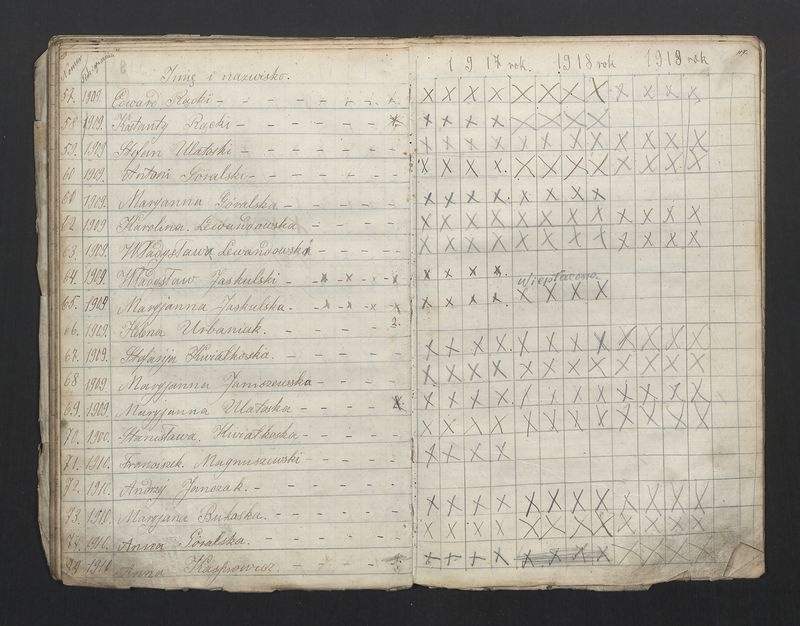 Numer Imię i nazwisko. 1917 rok. 1918 rok 1919 rok
57. 1909. Edward Rącki
58. 1909. Kostanty Rącki
59. 1909 Stefan Ulatoski
60 1909. Antoni Góralski
60 1909. Maryanna Góralska
62. 1909 Karolina. Lewandowska
63. 1909. Władysława Lewandowska
64. 1909. Władysław Jaskulski
wiepłacono
65. 1909 Maryjanna Jaskulska
66. 1909. Helena Urbaniak. 2.
67. 1909. Stefanja Kwiatkoska.
68 1909. Maryjanna Janiszewska
69. 1909. Maryjanna Ulatoska
70. 1900. Stanisława. Kwiatkoska
71. 1910. Franciszek. Magnuszewski
72. 1910. Andrzej Janczak.
73. 1910. Maryjana Butoska.
74. 1910. Anna Góralska.
1910 Anna Kasprowicz.